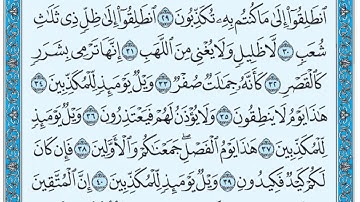 ٱنطَلِقُوٓا۟ إِلَىٰ مَا كُنتُم بِهِۦ تُكَذِّبُونَ ٢٩ ٱنطَلِقُوٓا۟ إِلَىٰ ظِلٍّ ذِى ثَلَٰثِ
شُعَبٍ ٣٠ لَّا ظَلِيلٍ وَلَا يُغْنِى مِنَ ٱللَّهَبِ ٣١ إِنَّهَا تَرْمِى بِشَرَرٍ
كَٱلْقَصْرِ ٣٢ كَأَنَّهُۥ جِمَٰلَتٌ صُفْرٌ ٣٣ وَيْلٌ يَوْمَئِذٍ لِّلْمُكَذِّبِينَ ٣٤
هَٰذَا يَوْمُ لَا يَنطِقُونَ ٣٥ وَلَا يُؤْذَنُ لَهُمْ فَيَعْتَذِرُونَ ٣٦ وَيْلٌ يَوْمَئِذٍ
لِّلْمُكَذِّبِينَ ٣٧ هَٰذَا يَوْمُ ٱلْفَصْلِ ۖ جَمَعْنَٰكُمْ وَٱلْأَوَّلِينَ ٣٨ فَإِن كَانَ
لَكُمْ كَيْدٌ فَكِيدُونِ ٣٩ وَيْلٌ يَوْمَئِذٍ لِّلْمُكَذِّبِينَ ٤٠ إِنَّ ٱلْمُتَّقِينَ